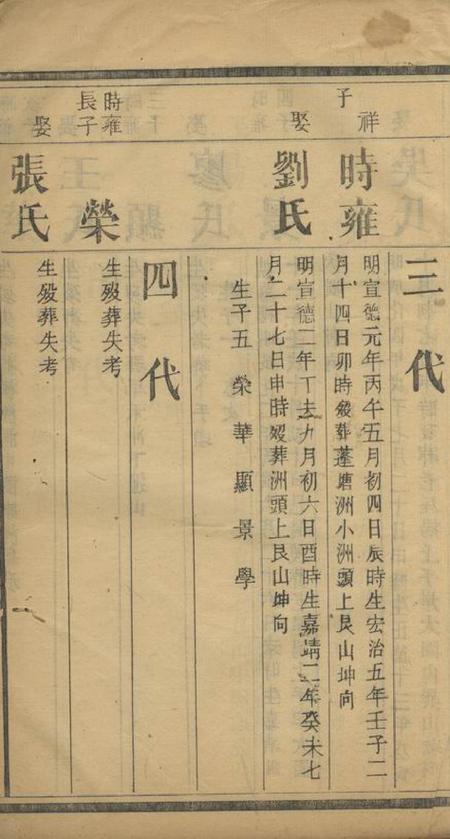 三代
祥子
時雍
明宣德元年丙午五月初四日辰時生宏治五年壬子二
月十四日卯時殁葬蓬塘洲小洲頭上艮山坤向
娶
劉氏
明宣德二年丁未九月初六日酉時生嘉靖二年癸未七
月二十七日申時殁葬洲頭上艮山坤向
生子五 榮 華 顯 景 學
四代
時雍長子
榮
生殁葬失考
娶
張氏
生殁葬失考